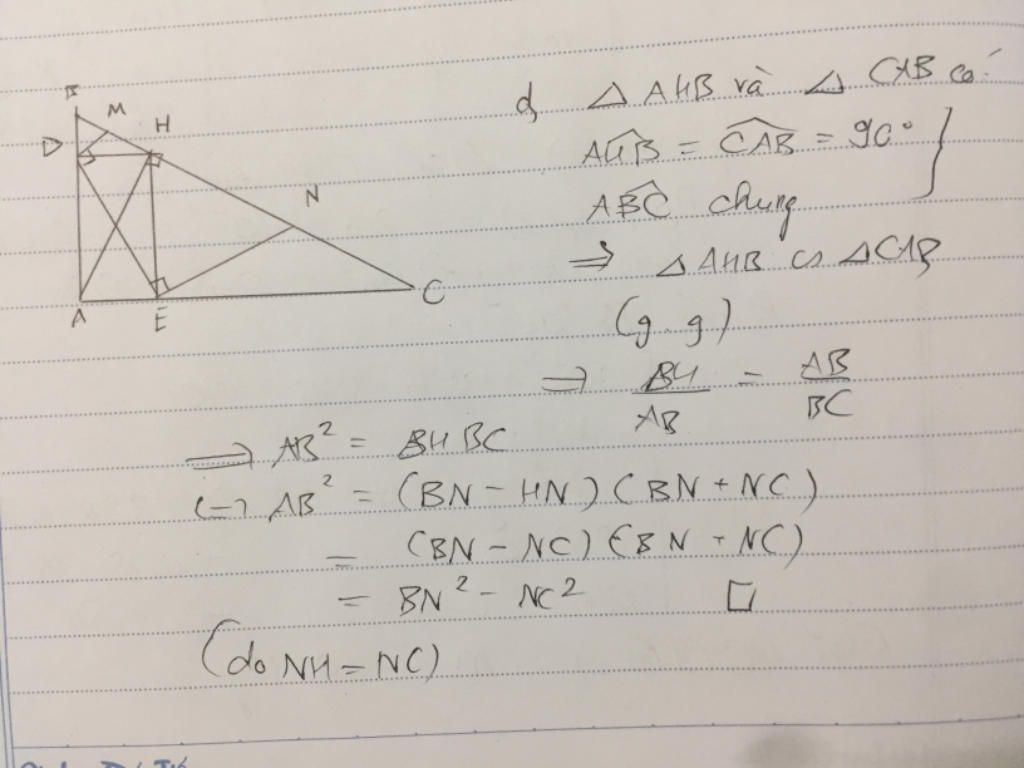 B
M
H
D
N
A
E
C
d, △ AHB và △ CAB có:
AHB̂ = CAB̂ = 90°
ABĈ chung
⇒ △AHB ∽ △CAB
(g.g)
⇒ BH/AB = AB/BC
⇒ AB² = BH BC
(-) AB² = (BN - HN) (BN + NC)
= (BN - NC) (BN + NC)
= BN² - NC² □
(do NH = NC)